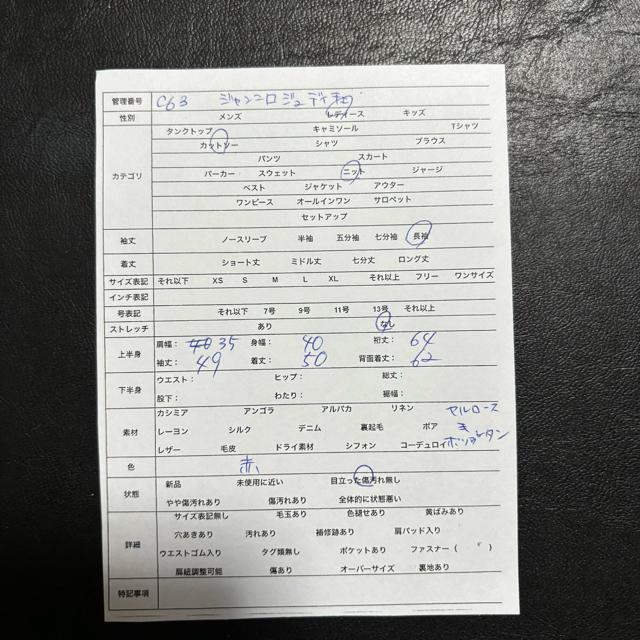 管理番号 C63 ジャンニロジュディチェ
性別 メンズ レディース キッズ
タンクトップ キャミソール Tシャツ
カットソー シャツ ブラウス
パンツ スカート
カテゴリ パーカー スウェット ニット ジャージ
ベスト ジャケット アウター
ワンピース オールインワン サロペット
セットアップ
袖丈 ノースリーブ 半袖 五分袖 七分袖 長袖
着丈 ショート丈 ミドル丈 七分丈 ロング丈
サイズ表記 それ以下 XS S M L XL それ以上 フリー ワンサイズ
インチ表記
号表記 それ以下 7号 9号 11号 13号 それ以上
ストレッチ あり なし
上半身 肩幅: 40 35 身幅: 40 裄丈: 64
袖丈: 49 着丈: 50 背面着丈: 62
下半身 ウエスト: ヒップ: 総丈:
股下: わたり: 裾幅:
カシミア アンゴラ アルパカ リネン セルロース
素材 レーヨン シルク デニム 裏起毛 ボア
レザー 毛皮 ドライ素材 シフォン コーデュロイ
色 赤
状態 新品 未使用に近い 目立った傷汚れ無し
やや傷汚れあり 傷汚れあり 全体的に状態悪い
サイズ表記無し 毛玉あり 色褪せあり 黄ばみあり
詳細 穴あきあり 汚れあり 補修跡あり 肩パッド入り
ウエストゴム入り タグ類無し ポケットあり ファスナー ( )
肩紐調整可能 傷あり オーバーサイズ 裏地あり
特記事項